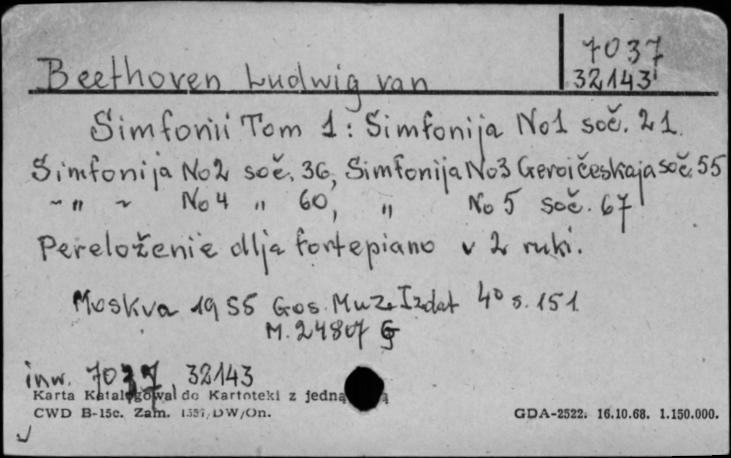 7037
32143
Beethoven Ludwig van
Simfonii Tom 1: Simfonija No1 soč. 21.
Simfonija No2 soč. 36, Simfonija No3 Geroičeskaja soč. 55
~ " ~ No 4 " 60, " No 5 soč. 67
Pereloženie dlja fortepiano v 2 ruki.
Moskva 1955 Gos. Muz. Izdat 4° s. 151
M. 24807 G
inw. 7037, 32143
Karta Katalogowa do Kartoteki z jedną
CWD B-15c. Zam. 1557/DW/On.
GDA-2522. 16.10.68. 1.150.000.